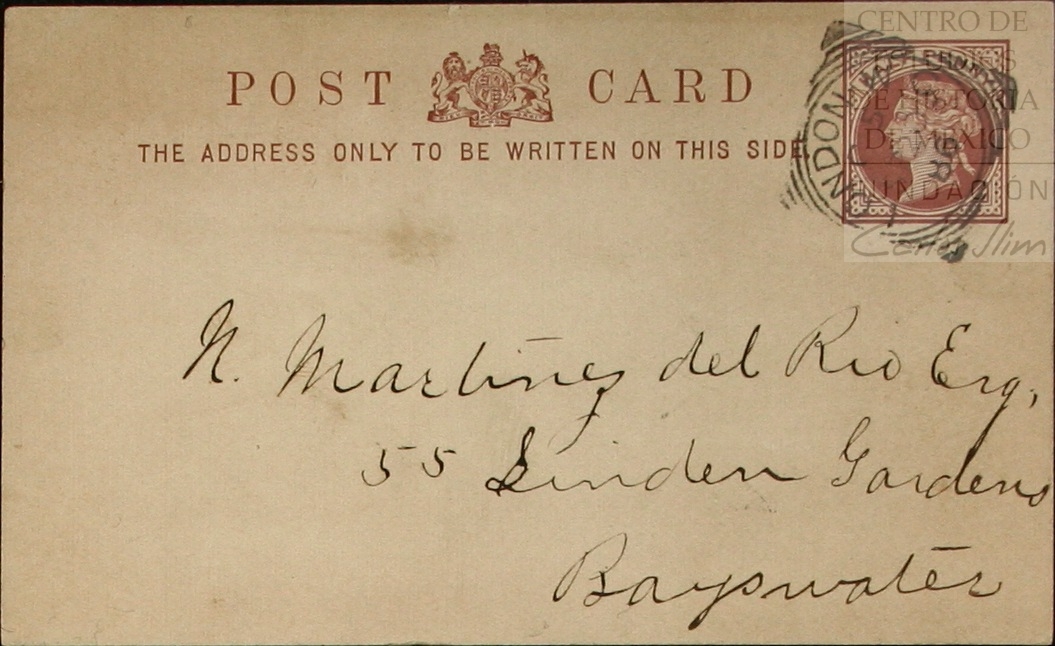 POST CARD
THE ADDRESS ONLY TO BE WRITTEN ON THIS SIDE.
CENTRO DE
DE HISTORIA
DE MÉXICO
FUNDACIÓN
Carlos Slim
LONDON
N. Martinez del Rio Esq,
55 Linden Gardens
Bayswater